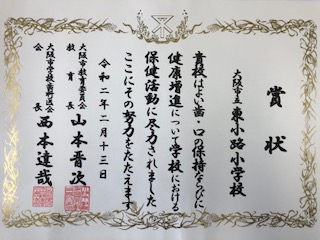 賞状
大阪市立東小路小学校
貴校はよい歯・口の保持ならびに
健康増進について学校における
保健活動に尽力されました
ここにその努力をたたえます
令和二年二月十三日
大阪市教育委員会
教育長 山本晋次
大阪市学校歯科医会
会長 西本達哉